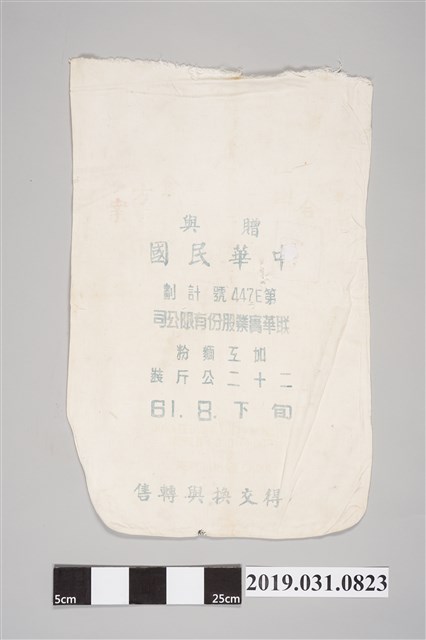 贈與
中華民國
第447E號計劃
聯華實業股份有限公司
加工麵粉
二十二公斤裝
61.8.下旬
得交換與轉售
5cm
25cm
2019.031.0823